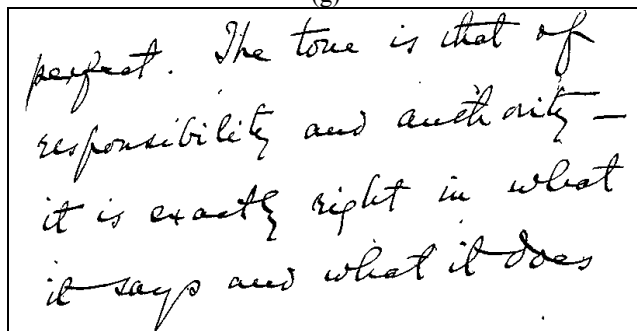 (g)
perfect. The tone is that of
responsibility and authority —
it is exactly right in what
it says and what it does